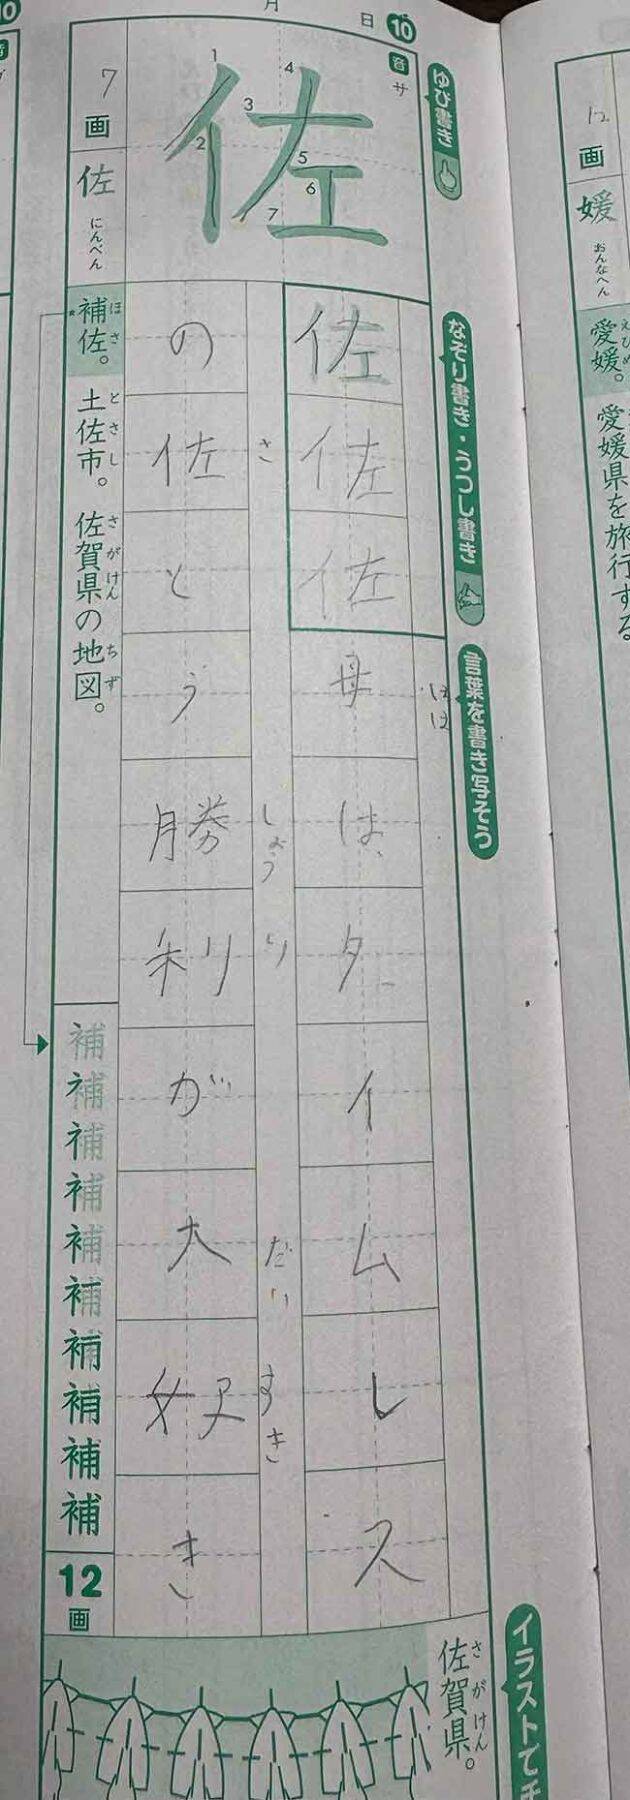 10
月
日
10
音
サ
ゆび書き
1
2
3
4
5
6
7
佐
7
画
佐
にんべん
なぞり書き・うつし書き
佐
佐
佐
言葉を書き写そう
はは
母はタイムレス
さ
しょうり
だい
すき
の佐とう勝利が大好き
ほさ
補佐。
とさし
土佐市。
さがけん
ちず
佐賀県の地図。
補
補
補
補
補
補
補
補
補
補
12
画
さがけん
佐賀県。
イラストで
12
画
媛
おんなへん
えひめ
愛媛。
愛媛県を旅行する